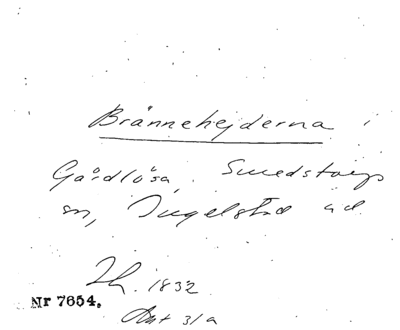 Brännehejderna
Gårdlösa, Smedstorps
sn, Ingelstad hd.
Th. 1832
Nr 7654.
Ant 31a